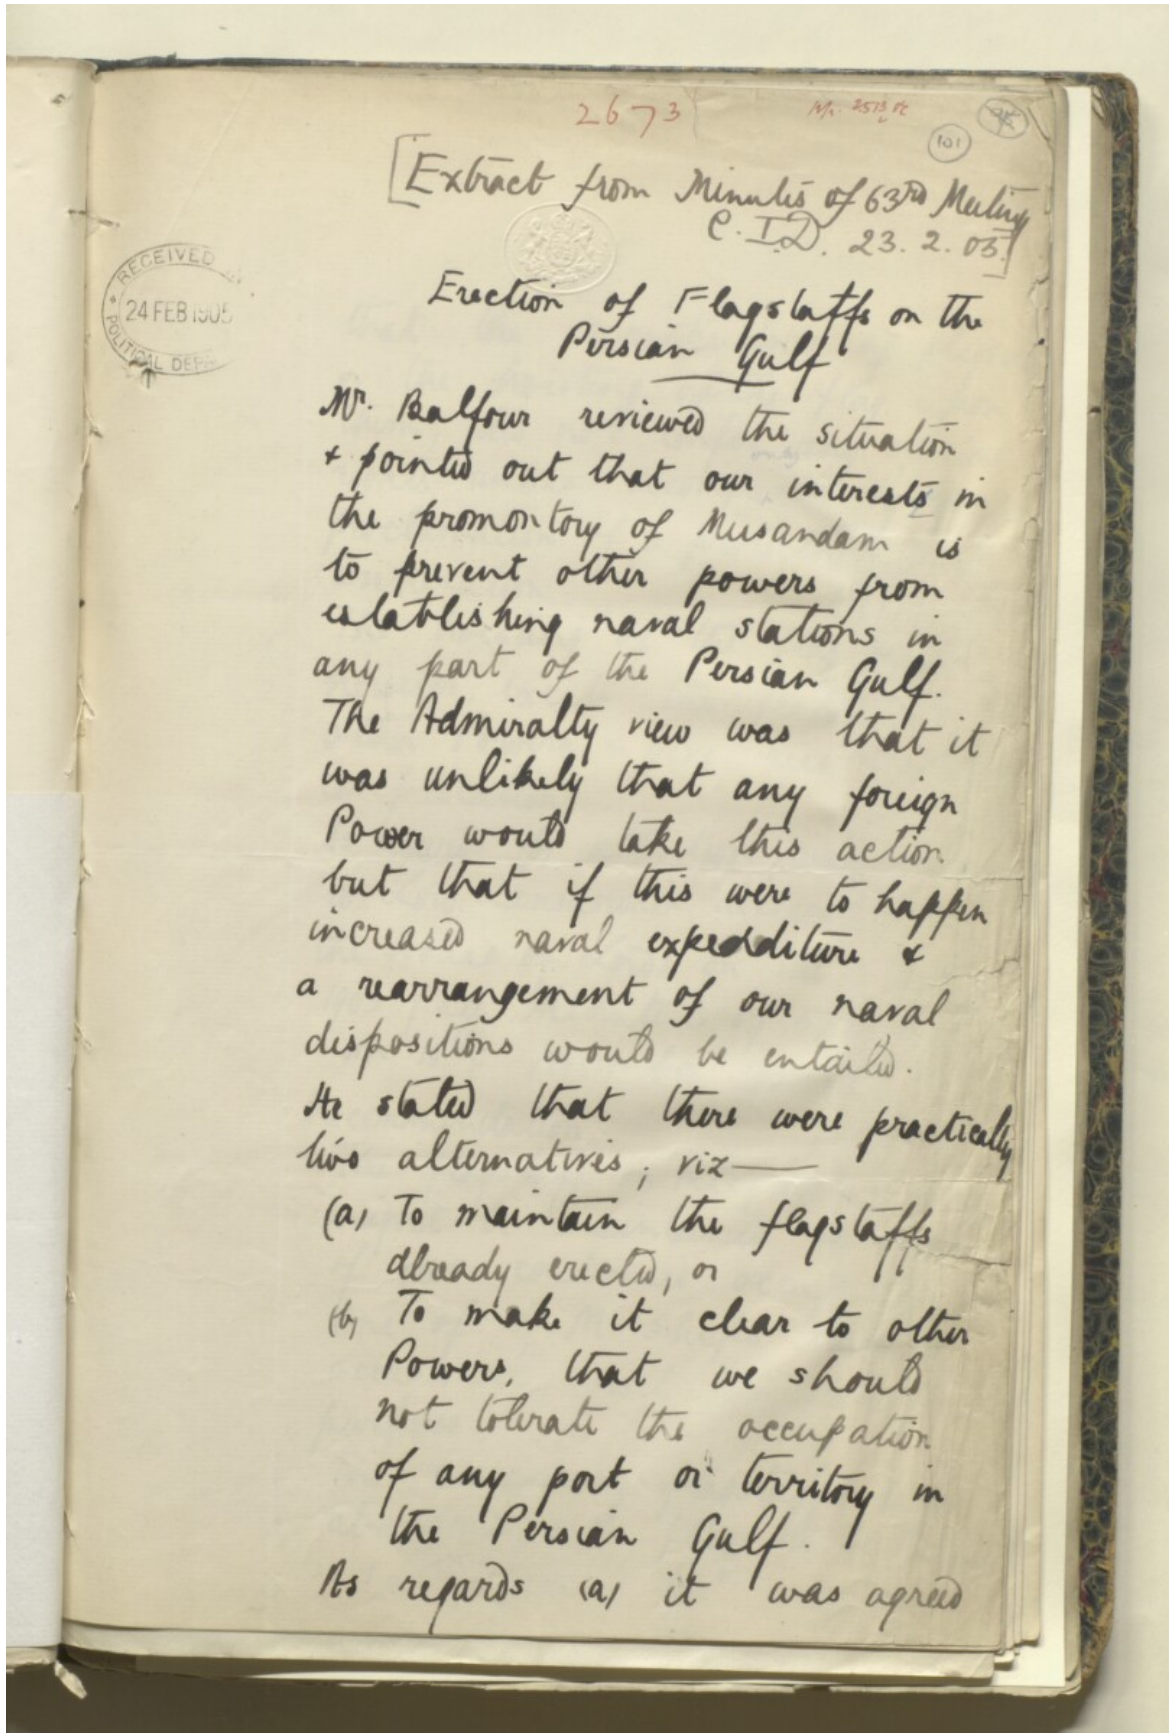 2673
101
[Extract from Minutes of 63rd Meeting
C.I.D. 23.2.05]
RECEIVED
24 FEB 1905
POLITICAL DEP
Erection of Flagstaffs on the
Persian Gulf
Mr. Balfour reviewed the situation
& pointed out that our interests in
the promontory of Musandam is
to prevent other powers from
establishing naval stations in
any part of the Persian Gulf.
The Admiralty view was that it
was unlikely that any foreign
Power would take this action
but that if this were to happen
increased naval expedditure &
a rearrangement of our naval
dispositions would be entailed.
He stated that there were practically
two alternatives; viz—
(a) To maintain the flagstaffs
already erected, or
(b) To make it clear to other
Powers, that we should
not tolerate the occupation
of any port or territory in
the Persian Gulf.
As regards (a) it was agreed